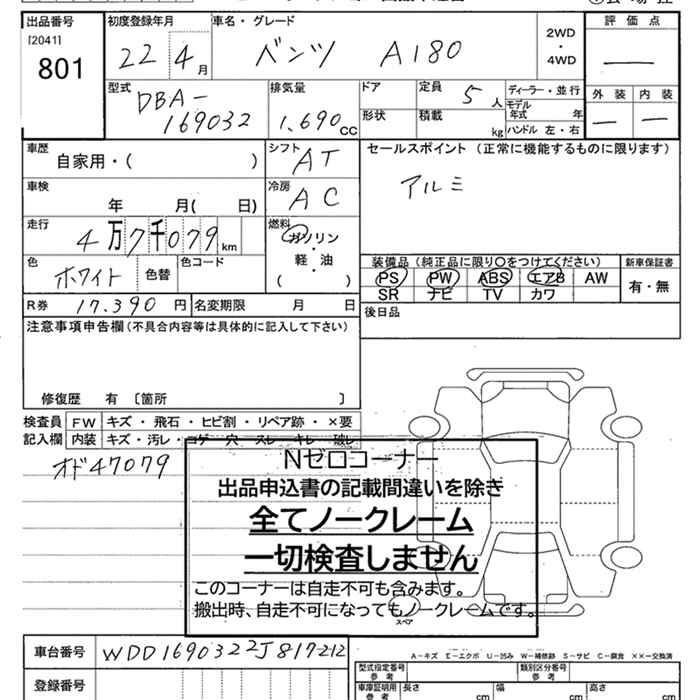 出品番号 初度登録年月 車名・グレード 評価点
[2041] 801 22 4月 ベンツ A180 2WD・4WD —
型式 排気量 ドア 定員 5人 ディーラー・並行 外装 内装
DBA-169032 1.690cc 形状 積載 kg モデル年式 年 — —
ハンドル 左・右
車歴 自家用・( ) シフト AT セールスポイント (正常に機能するものに限ります)
車検 年 月( 日) 冷房 AC アルミ
走行 4万7千079km 燃料 ガソリン・軽・油 ( )
装備品 (純正品に限り〇をつけてください) 新車保証書
色 ホワイト 色替 色コード PS PW ABS エアB AW 有・無
SR ナビ TV カワ
R券 17.390円 名変期限 月 日 後日品
注意事項申告欄(不具合内容等は具体的に記入して下さい)
修復歴 有 〔箇所 〕
検査員 FW キズ・飛石・ヒビ割・リペア跡・×要
記入欄 内装 キズ・汚レ・コゲ・穴・スレ・キレ・破レ
オド47079
Nゼロコーナー
出品申込書の記載間違いを除き
全てノークレーム
一切検査しません
このコーナーは自走不可も含みます。
搬出時、自走不可になってもノークレームです。
スペア
車台番号 WDD1690322J817212
A-キズ E-エクボ U-凹み W-補修跡 S-サビ C-腐食 ××-交換済
登録番号 型式指定番号 参考 類別区分番号 参考
車庫証明用 参考 長さ cm 幅 cm 高さ cm